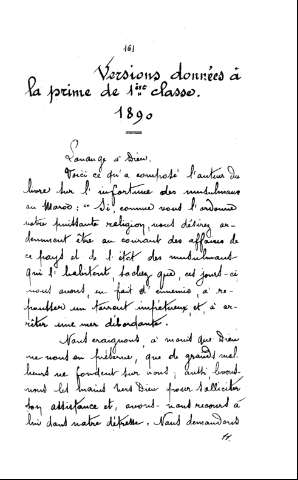 161
Versions données à
la prime de 1ère classe.
1890
Louange à Dieu,
Voici ce qu'a composé l'auteur du
livre sur l'infortune des musulmans
au Maroc : " Si comme vous l'ordonne
notre puissante religion, vous désirez ar-
demment être au courant des affaires de
ce pays et de l'état des musulmans
qui l'habitent sachez que, ces jours-ci
nous avons, en fait d'ennemis, à re-
pousser un torrent impétueux et, à ar-
rêter une mer débordante.
Nous craignons, à moins que Dieu
ne nous en préserve, que de grands mal
heurs ne fondent sur nous ; aussi levons-
nous les mains vers Dieu pour solliciter
son assistance et, avons-nous recours à
lui dans notre détresse. Nous demandons